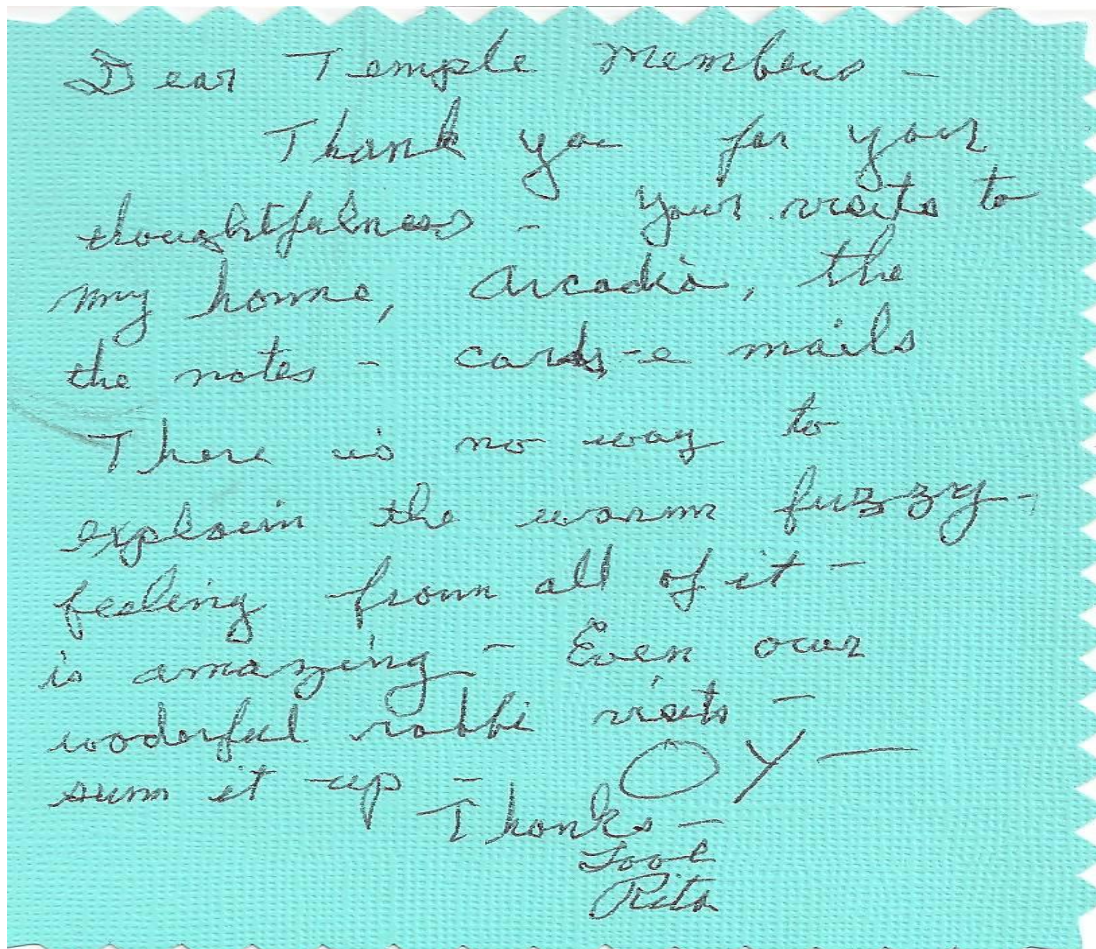 Dear Temple Members -
Thank you for your
thoughtfulness - your visits to
my home, Arcadia, the
the notes - cards, -e mails
There is no way to
explain the warm fuzzy -
feeling from all of it -
is amazing - Even our
woderful rabbi visits -
sum it up - OY -
Thanks -
Love
Rita